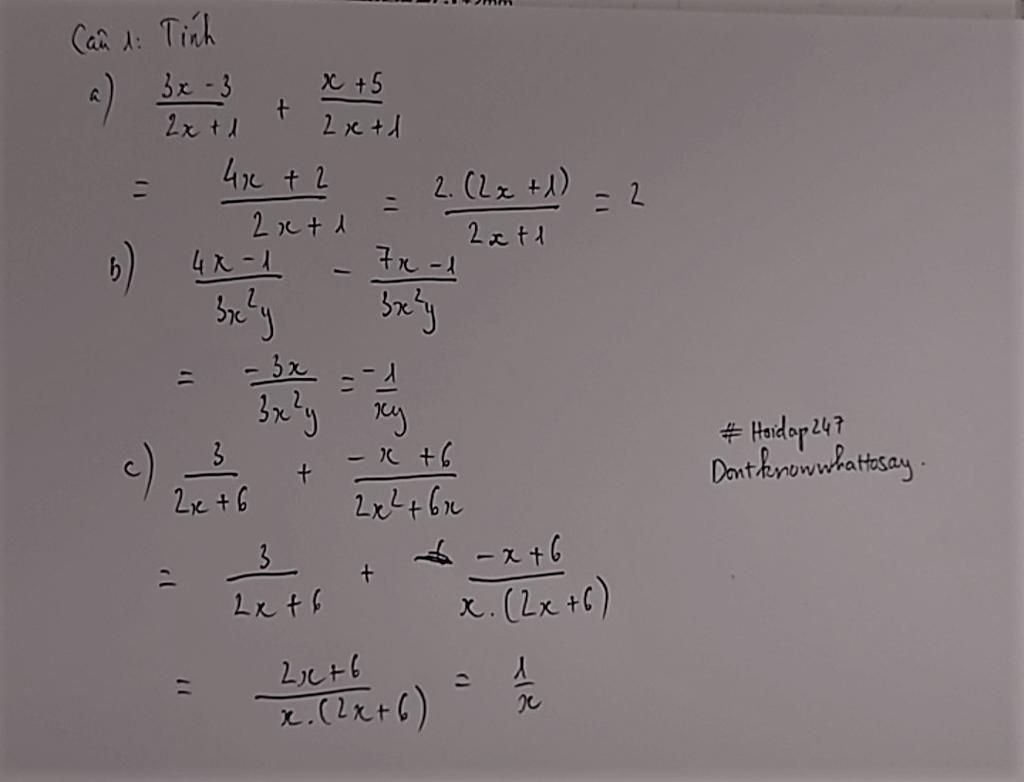 Câu 1: Tính
a) \frac{3x-3}{2x+1} + \frac{x+5}{2x+1}
= \frac{4x+2}{2x+1} = \frac{2.(2x+1)}{2x+1} = 2
b) \frac{4x-1}{3x^2y} - \frac{7x-1}{3x^2y}
= \frac{-3x}{3x^2y} = \frac{-1}{xy}
# Hoidap247
Dontknowwhattosay.
c) \frac{3}{2x+6} + \frac{-x+6}{2x^2+6x}
= \frac{3}{2x+6} + \frac{-x+6}{x.(2x+6)}
= \frac{2x+6}{x.(2x+6)} = \frac{1}{x}